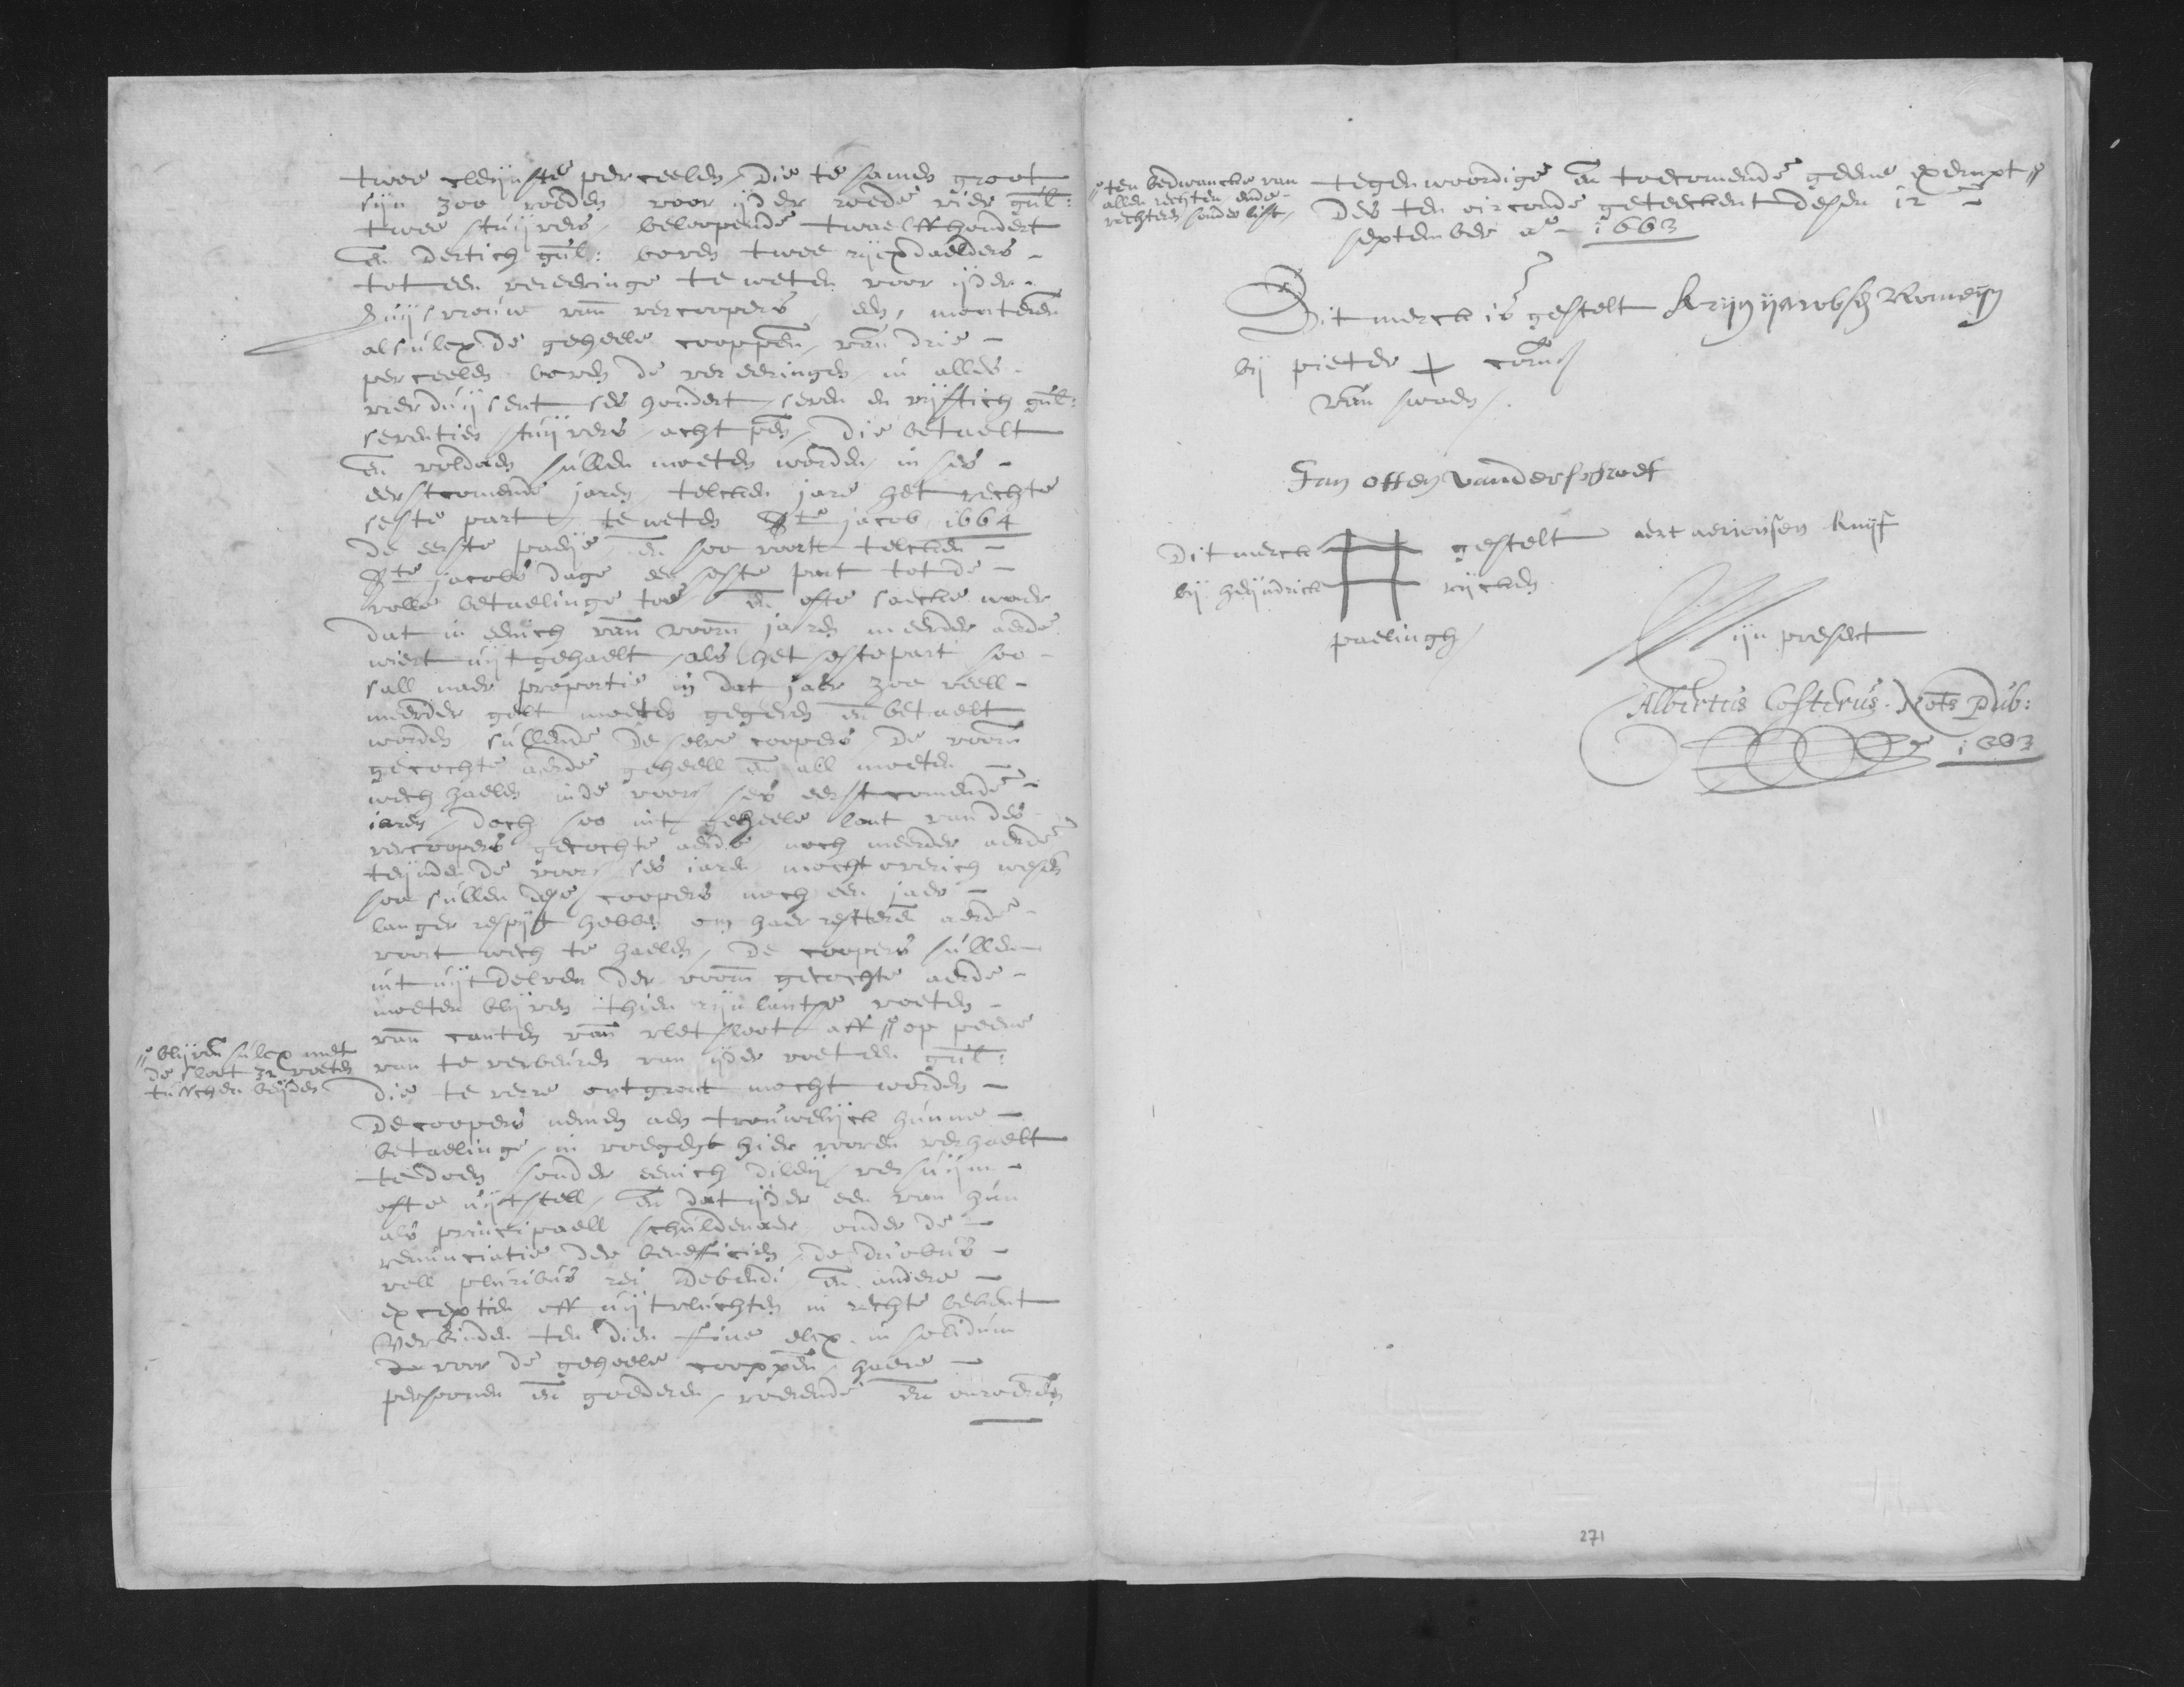 twee cleijnste perceelen, die te samen groot
sijn 300 roeden voor ijder roede vier gul:
twee stuijvers, beloopende twaelffhondert
en dertich gul: boven twee rijcxdaelders -
tot een vereeringe te weten voor ijder -
huijsvrouw van vercoopers, een, monteren
alsulcx de geheele cooppen van drie -
perceelen boven de vereeringen in alles -
vierduijsent ses hondert seven en vijftich gul:
seventien stuijvers acht pen, die betaelt
en voldaen sullen moeten worden in ses -
eerstcomende jaren, telcken jare het rechte
seste part, te weten Ste jacob 1664
de eerste paeije, en soo voort telcken -
Ste jacobs dage een seste part tot de -
volle betaelinge toe en ofte saecke waer
dat in eenich van voorn jaren meerder aerde
wiert uijtgehaelt, als het seste part soo -
sall naer proportie in dat jaer zoo veell -
meerder gelt moeten gegeven en betaelt
worden, sullende de selve coopers de voorn
gecochte aerde geheell en all moeten -
wech haelen in de voors ses eerstcomende -
jaren, doch soo int geheele lant van des -
vercoopers gecochte aerde noch meerder aerde
teijnden de voors ses jaren mocht overich wesen
soo sullen dese coopers noch een jaer -
langer respijt hebben om haer resteren aerde -
voort wech te haelen, De coopers sullen
int uijtdelven der voorn gecochte aerde -
moeten blijven thien rijnlantse voeten -
van canten van vlet sloot aff // op peene
// blijven sulcx met
de sloot 32 voeten
tusschen beijden
van te verbeuren van ijder voet een gul:
die te verre ontgront mocht worden -
De coopers nemen aen trouwelijck hunne -
betaelinge, in voegen hier vooren verhaelt
te doen sonder eenich dilaij, versuijm -
ofte uijtstell, en dat ijder een van hun
als principaell schuldenaer onder de -
renunciatie der beneficien, de duobus -
vell pluribus rei debendi en andere -
exceptien off uijtvluchten in rechte bekent
Verbinden ten dien fine elcx in solidum
voor de geheele cooppen, haere -
persoonen en goederen, roerende en onroeren
// ten bedwancke van
allen rechten ende -
rechteren sonder list,
tegenwoordige en toecomende geene exempt //
Des ten oirconde geteeckent desen 12 -
september ao - 1663
Dit merck is gestelt Krijn ijacobsz Romeijn
bij pieter + corns
van swoen
Jan otten vanderschoef
Dit merck gestelt aert aeriensen knijf
bij heijndrick rijcken
paelingh
Mijn present
Albertus Costerus. Nots Pub:
1663
271